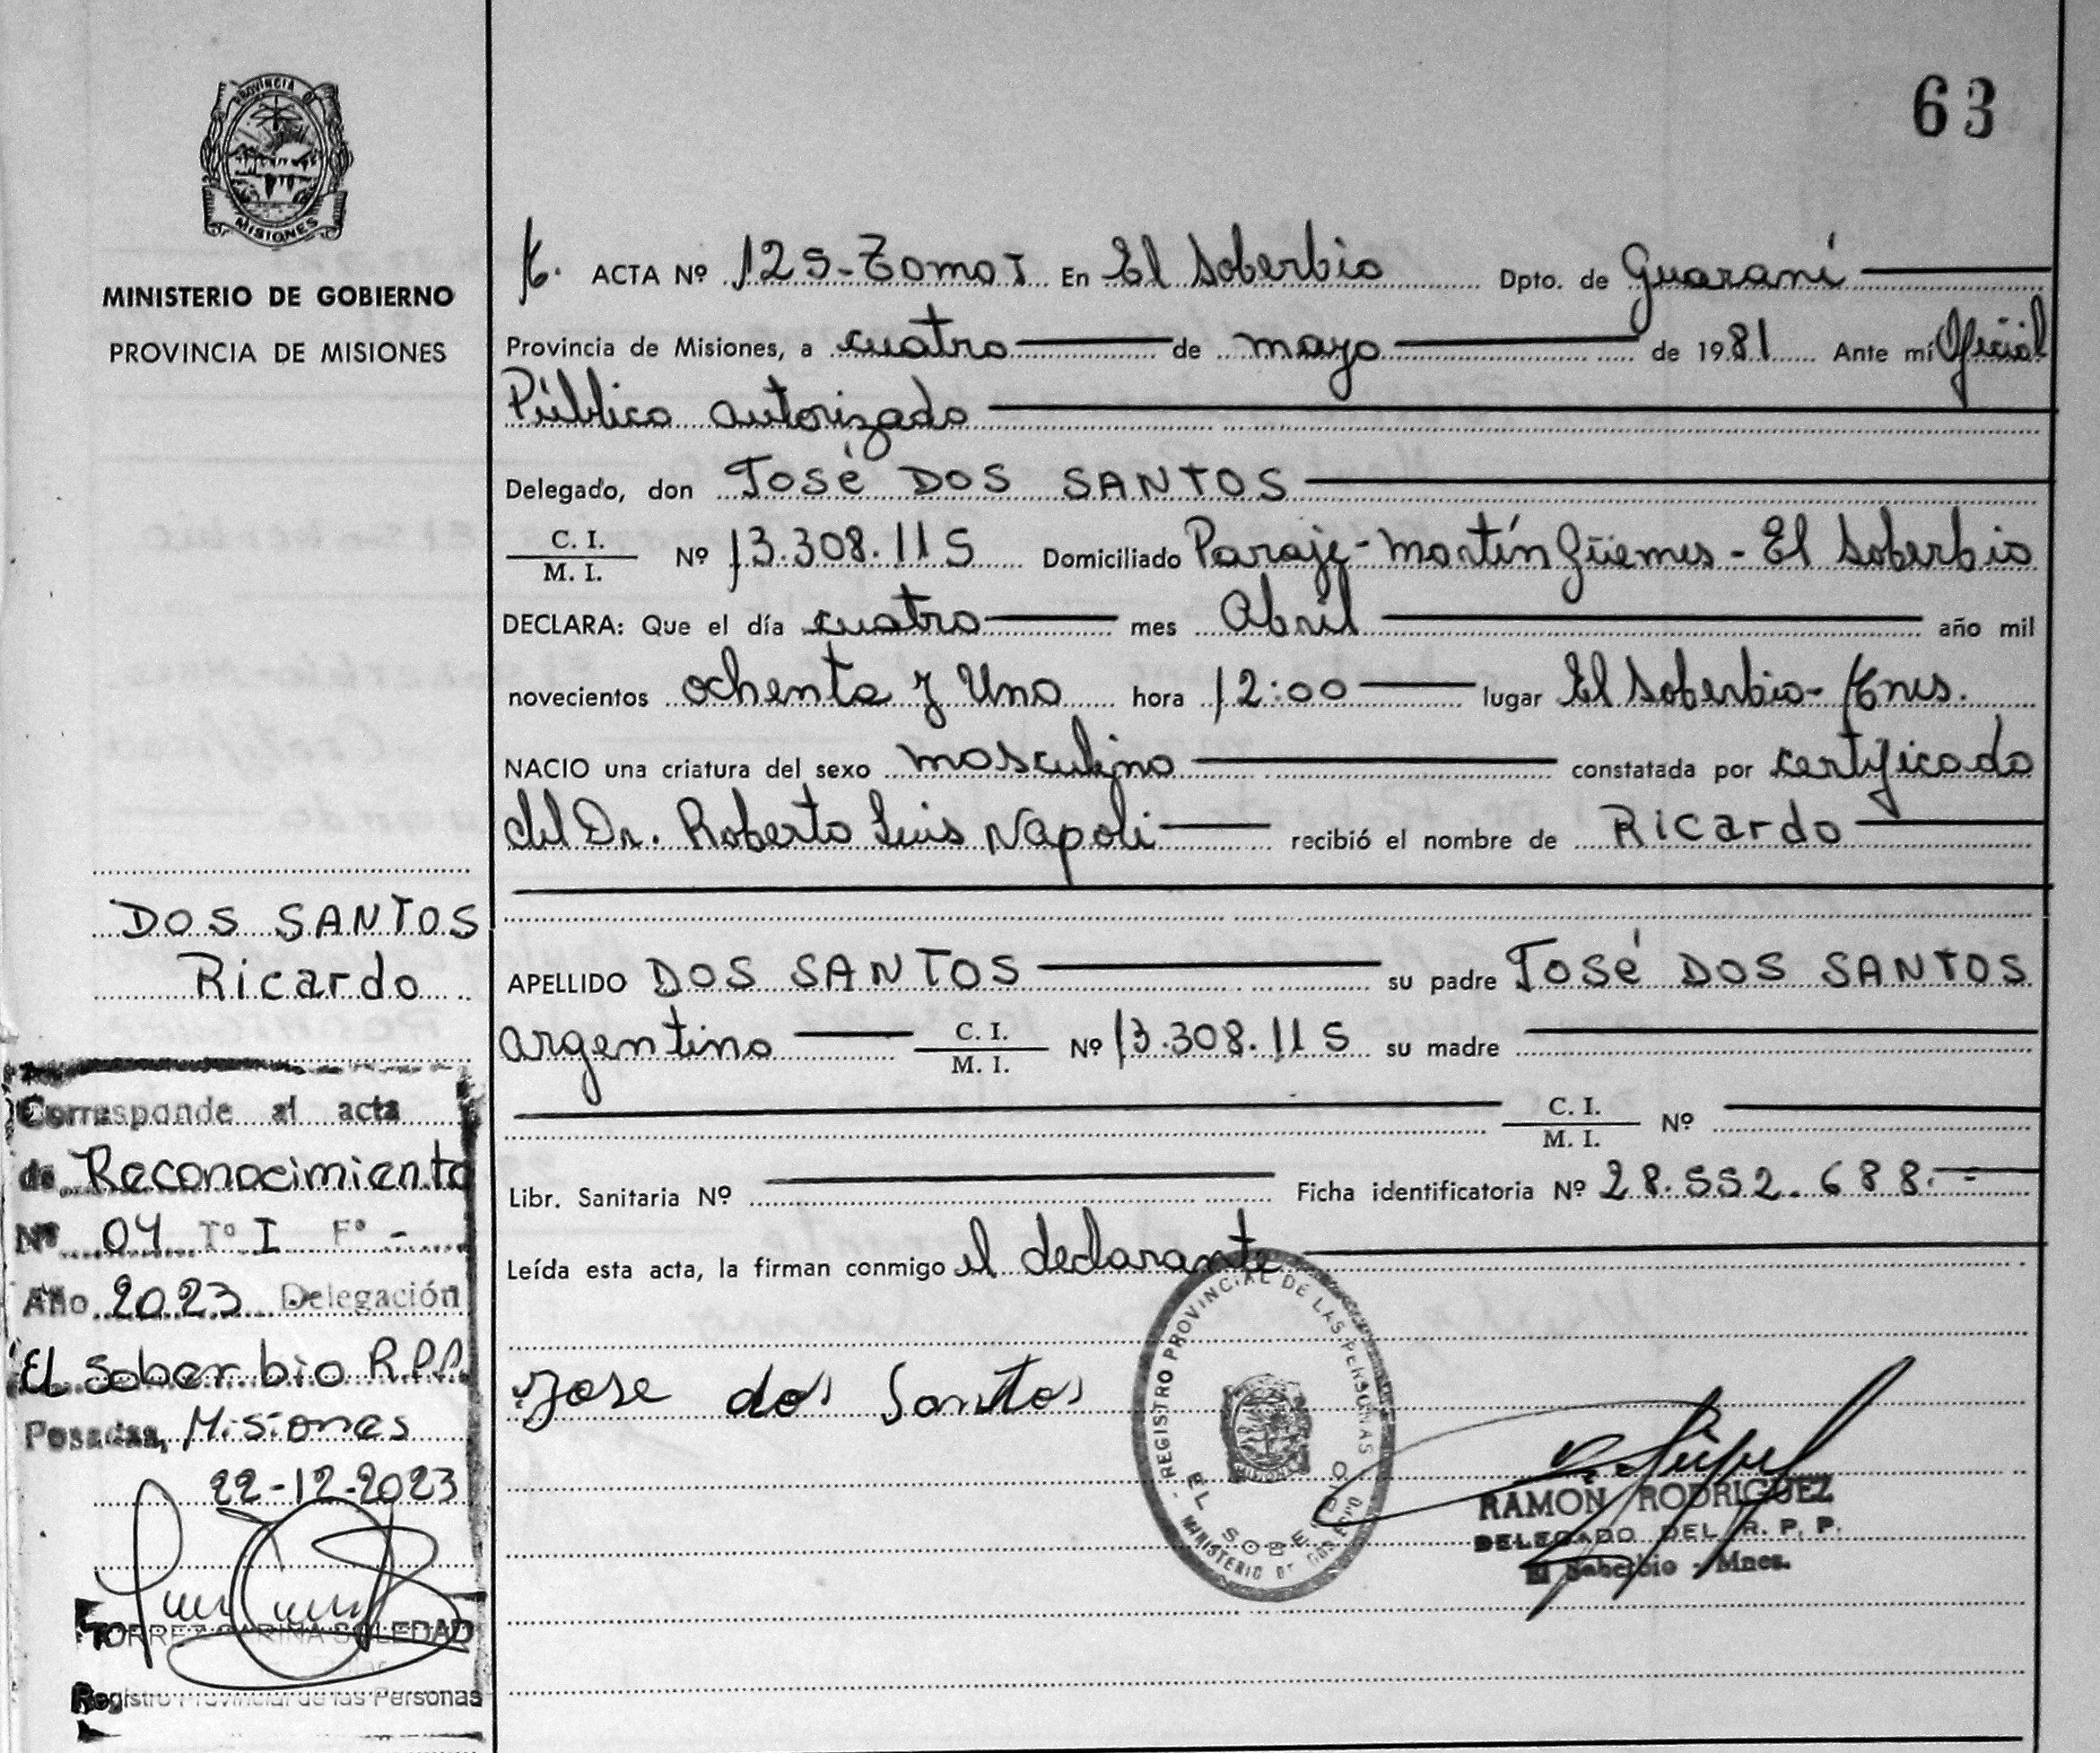 63
PROVINCIA DE
MISIONES
MINISTERIO DE GOBIERNO
PROVINCIA DE MISIONES
ACTA Nº 125-Tomo I En El Soberbio Dpto. de Guaraní
Provincia de Misiones, a cuatro de mayo de 1981 Ante mí Oficial
Público autorizado
Delegado, don José DOS SANTOS
C. I.
M. I. Nº 13.308.115 Domiciliado Paraje-Martín Güemes - El Soberbio
DECLARA: Que el día cuatro mes Abril año mil
novecientos ochenta y Uno hora 12:00 lugar El Soberbio - Mnes.
NACIO una criatura del sexo masculino constatada por certificado
del Dr. Roberto Luis Napoli recibió el nombre de Ricardo
APELLIDO DOS SANTOS su padre José DOS SANTOS
argentino C. I.
M. I. Nº 13.308.115 su madre
C. I.
M. I. Nº
Libr. Sanitaria Nº Ficha identificatoria Nº 28.552.688.-
Leída esta acta, la firman conmigo el declarante
Jose dos Santos
REGISTRO PROVINCIAL DE LAS PERSONAS
EL SOBERBIO
MINISTERIO DE GOBIERNO
RAMON RODRIGUEZ
DELEGADO DEL R. P. P.
El Soberbio - Mnes.
DOS SANTOS
Ricardo
Corresponde al acta
de Reconocimiento
Nº 04 Tº I Fº -
Año 2023 Delegación
El Soberbio R.P.P.
Posadas, Misiones
22-12-2023
TORREZ CARINA SOLEDAD
Registro Provincial de las Personas